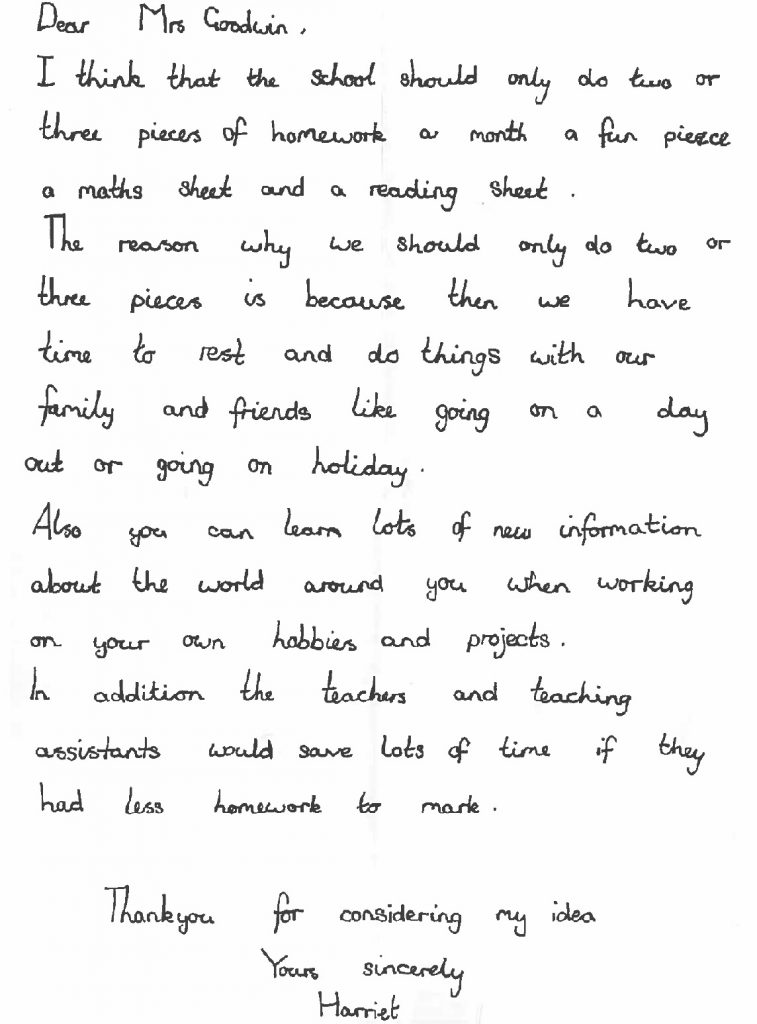 Dear Mrs Goodwin,
I think that the school should only do two or
three pieces of homework a month a fun piezce
a maths sheet and a reading sheet.
The reason why we should only do two or
three pieces is because then we have
time to rest and do things with our
family and friends like going on a day
out or going on holiday.
Also you can learn lots of new information
about the world around you when working
on your own hobbies and projects.
In addition the teachers and teaching
assistants would save lots of time if they
had less homework to mark.
Thankyou for considering my idea
Yours sincerely
Harriet